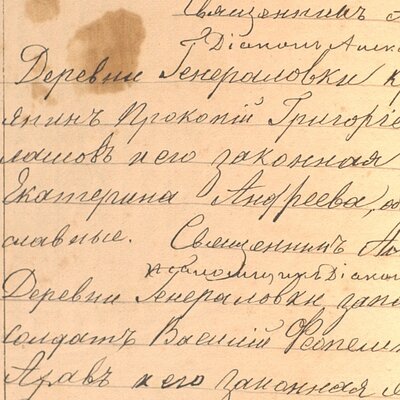 Священникъ
Діаконъ Алекс
Деревни Генераловки к
янинъ Прокопій Григорье
лашовъ и его законная
Екатерина Андреева, об
славные.
Священникъ Ал
Діакон
Деревни Генераловки запа
солдатъ Василій
и его законная